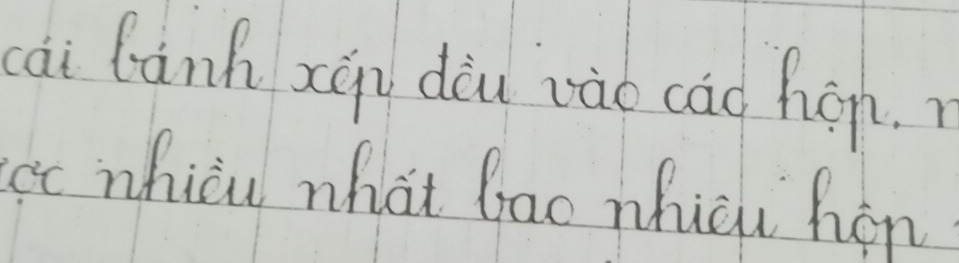 cái bánh xếp đều vào các hộp.
nhiêu nhất bao nhiêu hộp